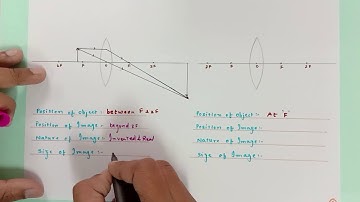 2F F O F 2F
2F F O F 2F
Position of object:- between F & 2F
Position of Image:- beyond 2F
Nature of Image:- Inverted & Real
Size of Image:-
Position of object:- At 'F'
Position of Image:-
Nature of Image:-
Size of Image:-